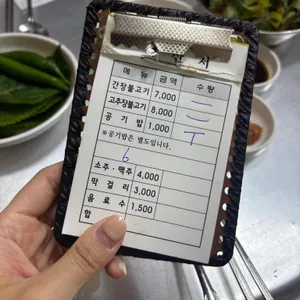 메 뉴 금 액 수 량
간장불고기 7,000 二
고추장불고기 8,000 二
공 기 밥 1,000 丅
※공기밥은 별도입니다.
6
소주·맥주 4,000
막 걸 리 3,000
음 료 수 1,500
합